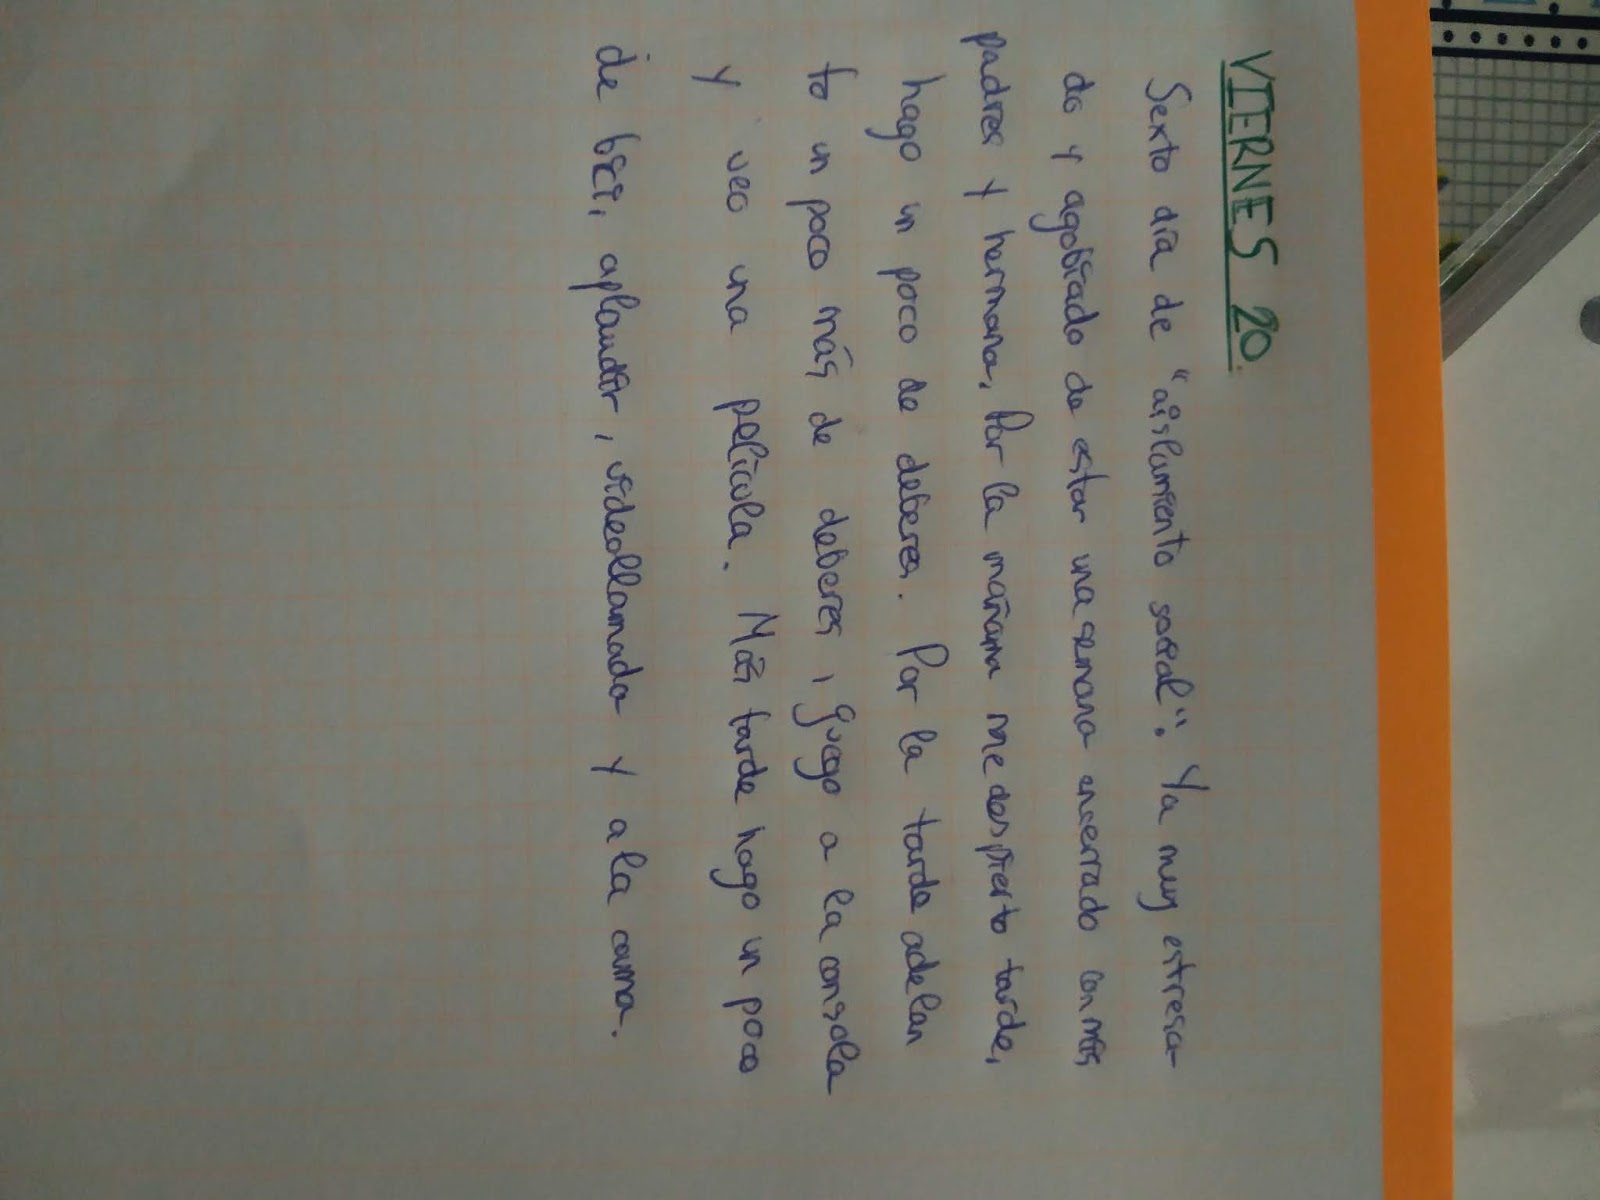 VIERNES 20.
Sexto día de "aislamiento social". Ya muy estresa
do y agobiado de estar una semana encerrado con mis
padres y hermana. Por la mañana me despierto tarde,
hago un poco de deberes. Por la tarde adelan
to un poco más de deberes, guego a la consola
y veo una película. Más tarde hago un poco
de bici, aplaudir, videollamada y a la cama.